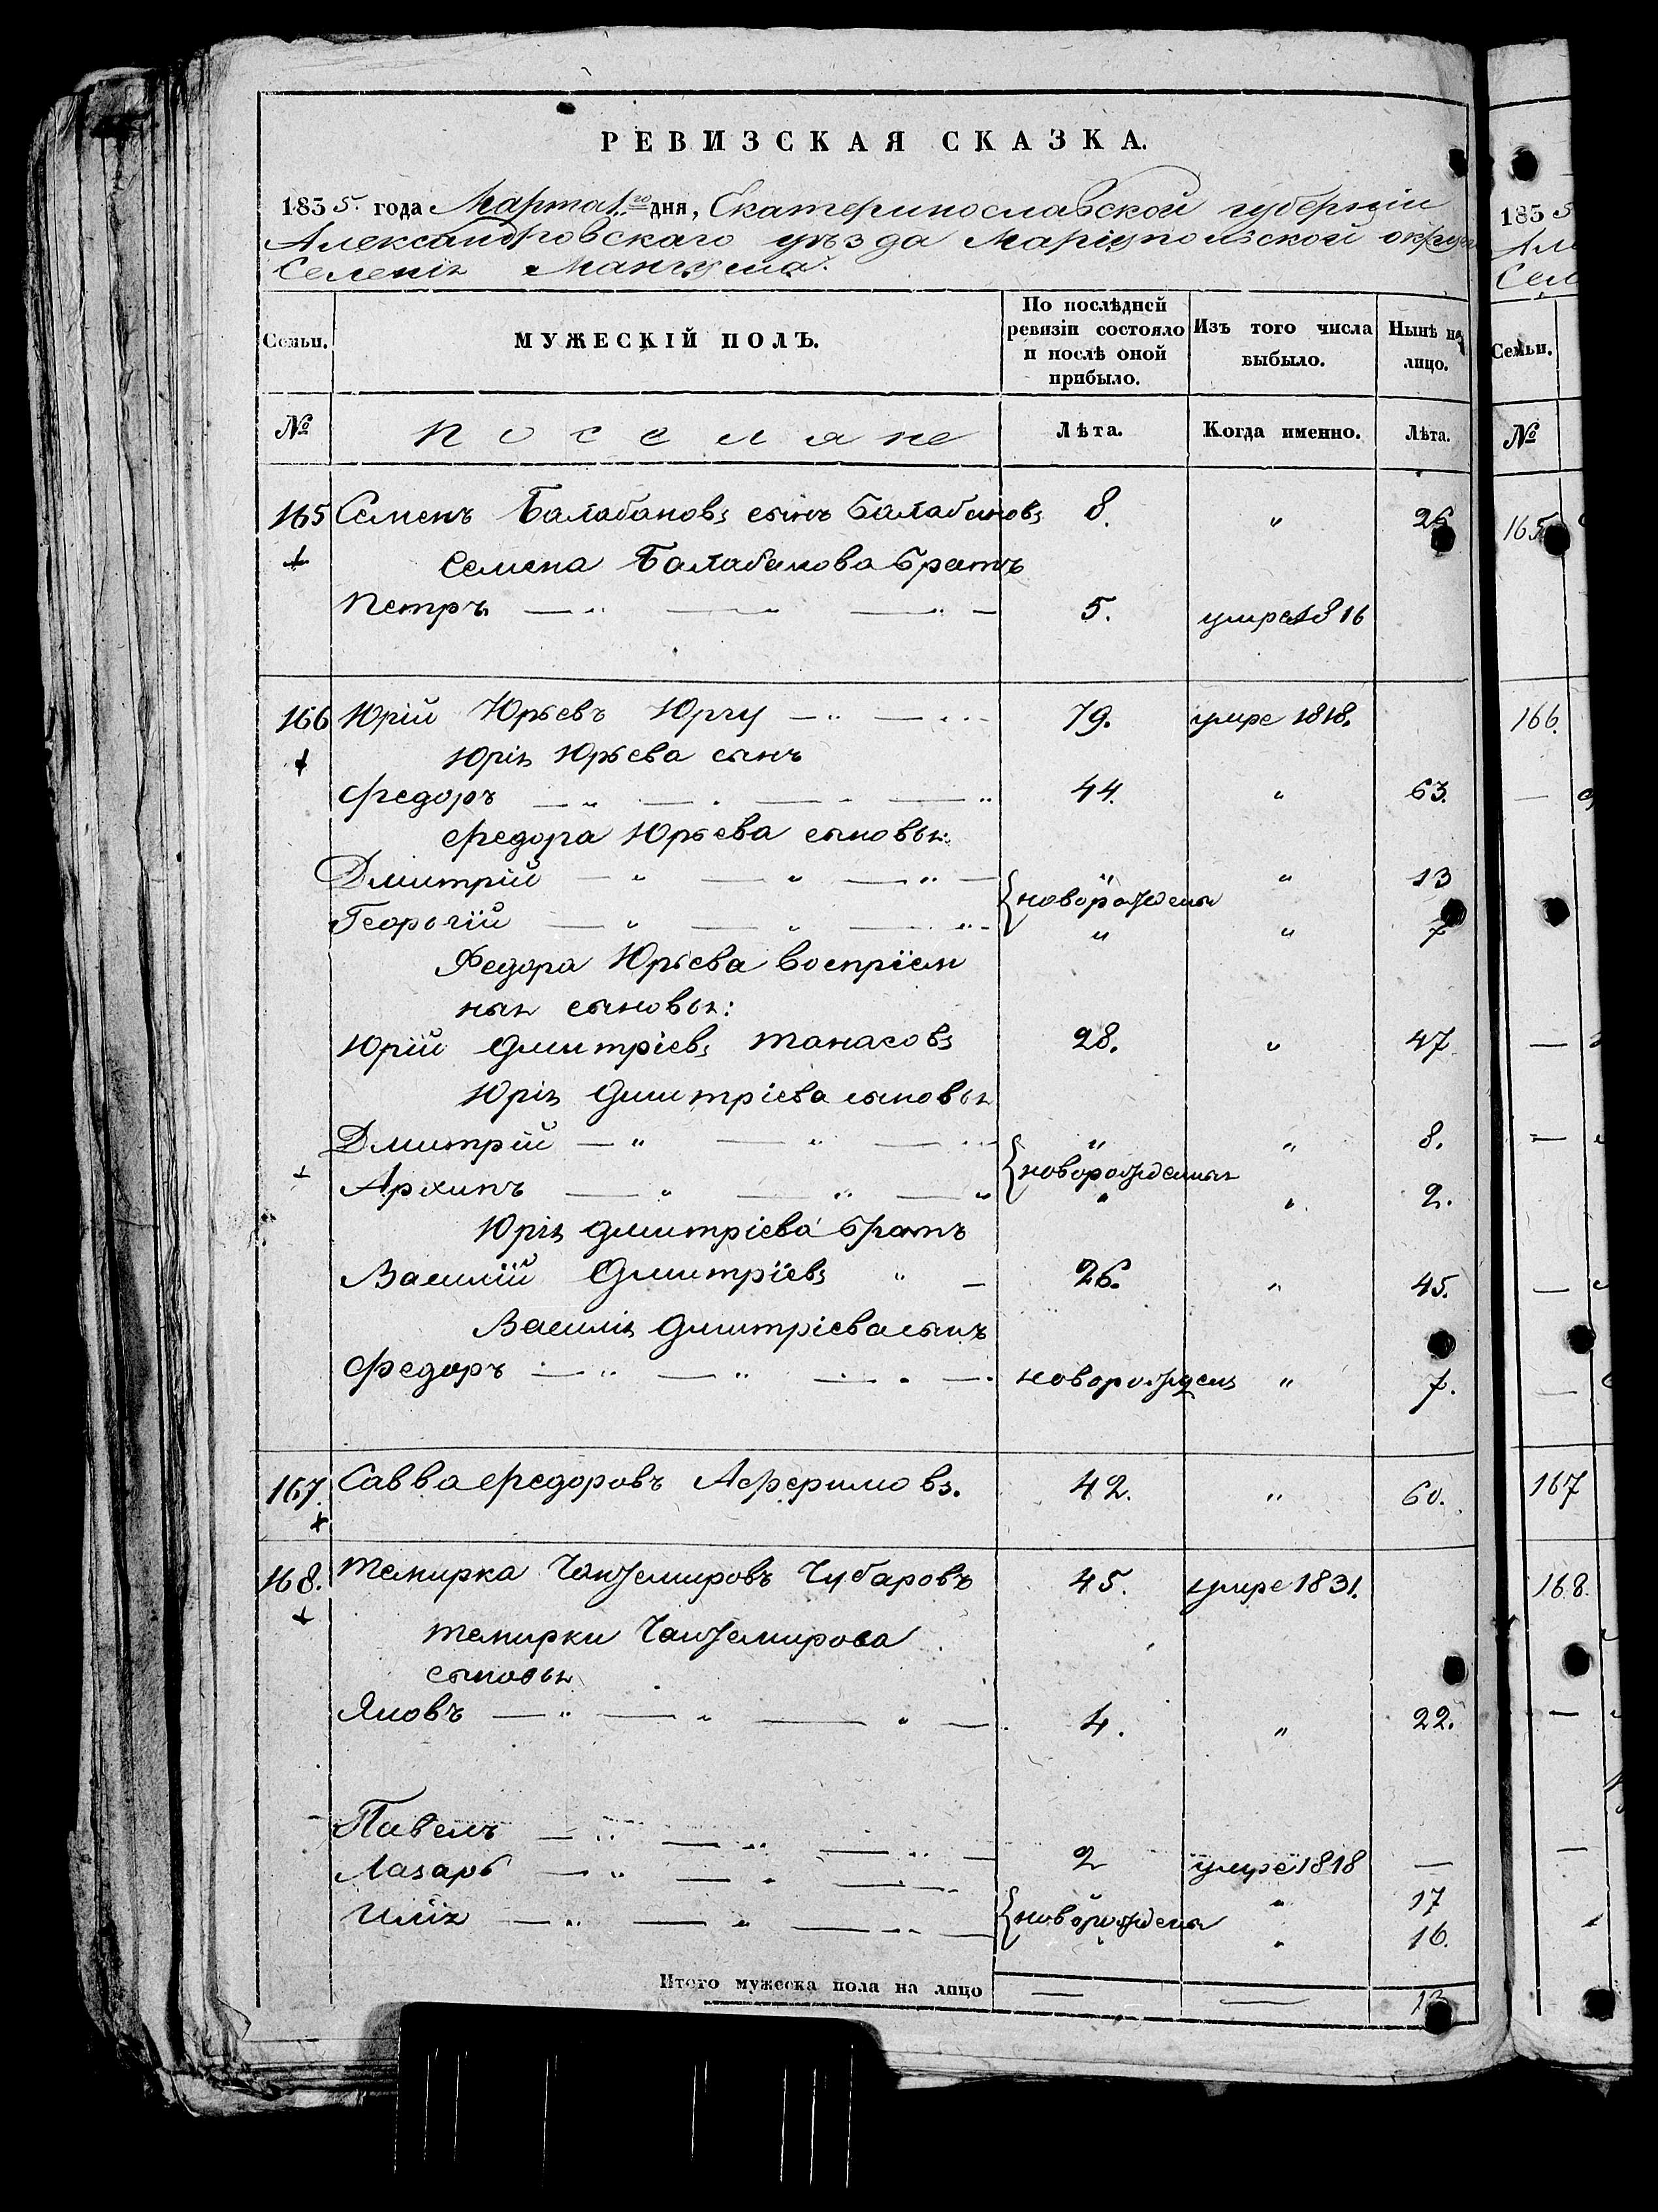 РЕВИЗСКАЯ СКАЗКА.
1835. года Марта 1.го дня, Екатеринославской губерніи
Александровскаго уѣзда Маріупольской округи
Селенія Мангуша.
Семьи. МУЖЕСКІЙ ПОЛЪ. По послѣдней ревизіи состояло и послѣ оной прибыло. Изъ того числа выбыло. Нынѣ на лицо.
№ Поселяне Лѣта. Когда именно. Лѣта.
165 Семенъ Балабановъ сынъ Балабановъ 8. " 26
Семена Балабанова братъ
Петръ — " — " — " — 5. умре 1816
166 Юрій Юрьевъ Юргу — " — " - 79. умре 1818.
Юрія Юрьева сынъ
Федоръ — " — " — " — " 44. " 63.
Федора Юрьева сыновья:
Дмитрій — " — " — " — " " 13
{новорожденыя
Георьгій — " — " — " - " " 7
Федора Юрьева воспріем
ныя сыновья:
Юрій Дмитріевъ Танасовъ 28. " 47
Юрія Дмитріева сыновья
Дмитрій — " — " — " - " " 8.
{новорожденыя
Архипъ — " — " — " " " 2.
Юрія Дмитріева братъ
Василій Дмитріевъ " — 26. " 45.
Василія Дмитріева сынъ
Федоръ — " — " — " — новорожденъ " 7.
167. Савва Федоровъ Аферимовъ. 42. " 60.
168. Темирка Чантемировъ Чубаровъ 45. умре 1831.
Темирки Чантемирова
сыновья
Яковъ — " — " — " — 4. " 22.
Павелъ — " — " — " — 2 умре 1818 —
Лазарь — " — " — " " " 17
{новорождены
Илія — " — " — " — " " 16.
Итого мужеска пола на лицо — — 13
183 5
Але
Сел
Семьи.
№
165
166.
167
168.